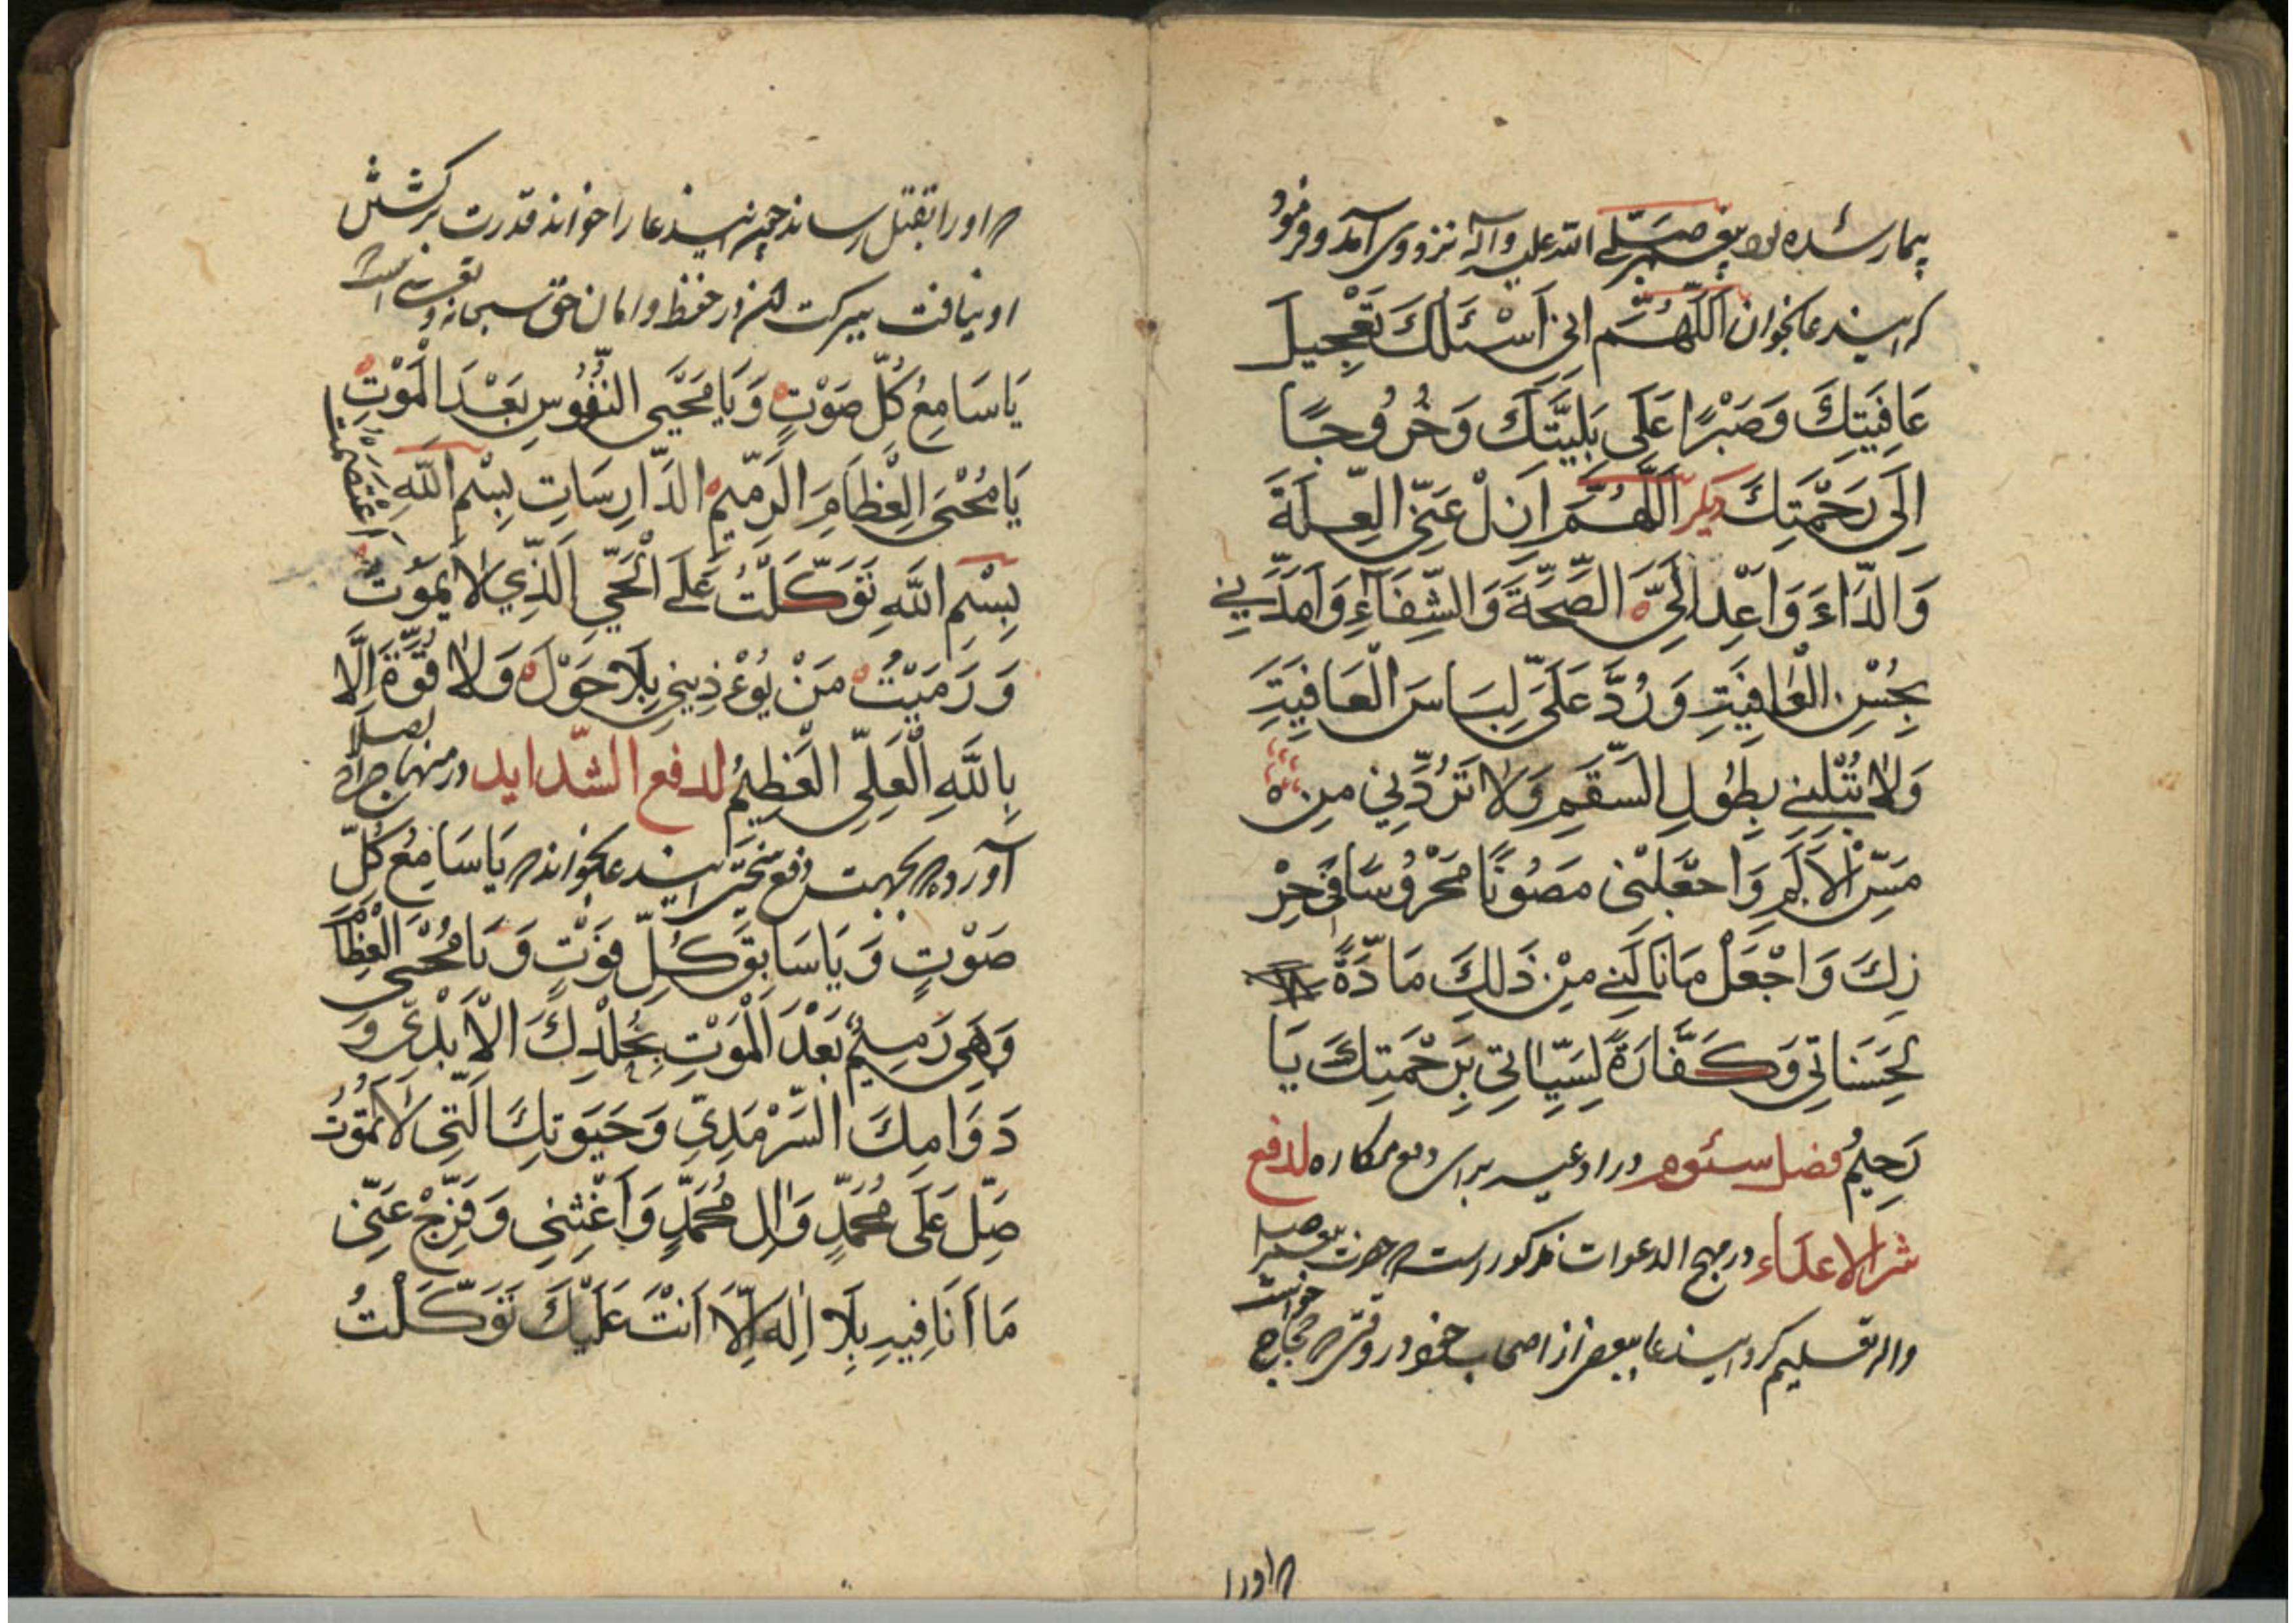 بیمار شده بود پیغمبر صلی الله علیه وآله نزد وی آمد و فرمود
که ایندعا بخوان اَللّٰهُمَّ اِنّی اَسْئَلُكَ تَعْجِیلَ
عَافِیَتِكَ وَصَبْرًا عَلَی بَلِیَّتِكَ وَخُرُوجًا
اِلَی رَحْمَتِكَ دیگر اَللّٰهُمَّ اَزِلْ عَنِّی الْعِلَّةَ
وَالدَّاءَ وَاَعِدْ اِلَیَّ الصِّحَّةَ وَالشِّفَاءِ وَاَمِدَّنِی
بِحُسْنِ الْعَافِیَتِ وَرُدَّ عَلَیَّ لِبَاسَ الْعَافِیَتِ
وَلَا تُبْلِنِی بِطُولِ السَّقَمِ وَلَا تَرُدَّنِی مِنْ
مَسِّ الْاَلَمِ وَاجْعَلْنِی مَصُونًا مَحْرُوسًا فِی حِرْ
زِكَ وَاجْعَلْ مَا نَالَنِی مِنْ ذَلِكَ مَادَّةً
لِحَسَنَاتِی وَكَفَّارَةً لِسَیِّاتِی بِرَحْمَتِكَ یَا
رَحِیمُ فصل سئوم در ادعیه برای دفع مکاره لدفع
شر الاعداء در مهج الدعوات مذکور است که حضرت پیغمبر صلی
واله تعلیم کرد ایندعا ببعض از اصحاب خود در وقتی که حجاج خواست
که اورا
که اورا بقتل رساند چون اینذعا را خواند قدرت بر کشتن
او نیافت ببرکت این در حفظ و امان حق سبحانه و تعالی است
یَا سَامِعُ كُلِّ صَوْتٍ وَیَا مُحْیِیَ النُّفُوسِ بَعْدَ الْمَوْتِ
یَا مُحْیِیَ الْعِظَامِ الرَّمِیمِ الدَّارِسَاتِ بِسْمِ اللّٰهِ
اِعْتَصَمْتُ
بِسْمِ اللّٰهِ تَوَكَّلْتُ عَلَی الْحَیِّ الَّذِی لَا یَمُوتُ
وَرَمَیْتُ مَنْ یُوءْذِینِی بِلَا حَوْلَ وَلَا قُوَّةَ اِلَّا
بِاللّٰهِ الْعَلِیِّ الْعَظِیمُ لدفع الشداید در منهاج
آورده که بجهت دفع اینذعا بخواند که یَا سَامِعُ كُلِّ
صَوْتٍ وَیَا سَابِقَ كُلِّ فَوْتٍ وَیَا مُحْیِیَ الْعِظَامَ
وَهِیَ رَمِیمٌ بَعْدَ الْمَوْتِ بِخُلْدِكَ الْاَبَدِیِّ وَ
دَوَامِكَ السَّرْمَدِیِّ وَحَیَوتِكَ الَّتِی لَا تَمُوتُ
صَلِّ عَلَی مُحَمَّدٍ وَاٰلِ مُحَمَّدٍ وَاَغِثْنِی وَفَرِّجْ عَنِّی
مَا اَنَا فِیهِ بِلَا اِلٰهَ اِلَّا اَنْتَ عَلَیْكَ تَوَكَّلْتُ